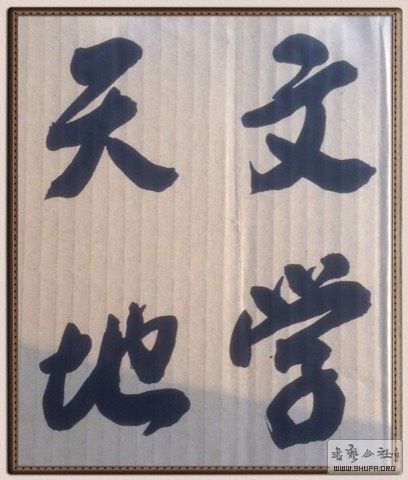 文学
天地
书艺公社
WWW.SHUPA.ORG